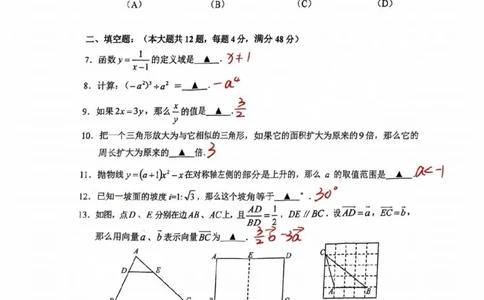 (A) (B) (C) (D)
二、填空题：（本大题共12题，每题4分，满分48分）
7．函数 y=1/(x-1) 的定义域是 ▲ ． x≠1
8．计算：(-a²)³÷a² = ▲ ． -a⁴
9．如果2x=3y，那么 x/y 的值是 ▲ ． 3/2
10．把一个三角形放大为与它相似的三角形，如果它的面积扩大为原来的9倍，那么它的
周长扩大为原来的 ▲ 倍． 3
11．抛物线 y=(a+1)x²-x 在对称轴左侧的部分是上升的，那么 a 的取值范围是 ▲ ． a<-1
12．已知一坡面的坡度 i=1:√3，那么这个坡角等于 ▲ °． 30°
13．如图，点D、E分别在边AB、AC上，且 AD/BD=1/2，DE∥BC．设 AD=a，EC=b，
那么用向量a、b表示向量BC为 ▲ ． 3/2 b -3a
A A E D
C
D E
A B
B C